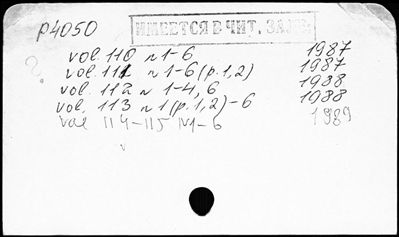 P4050
ИМЕЕТСЯ В ЧИТ. ЗАЛЕ
vol. 110 n 1-6 1987
? vol. 111 n 1-6 (p. 1, 2) 1987
vol. 112 n 1-4, 6 1988
vol. 113 n 1 (p. 1, 2) - 6 1988
vol 114-115 N 1-6 1989